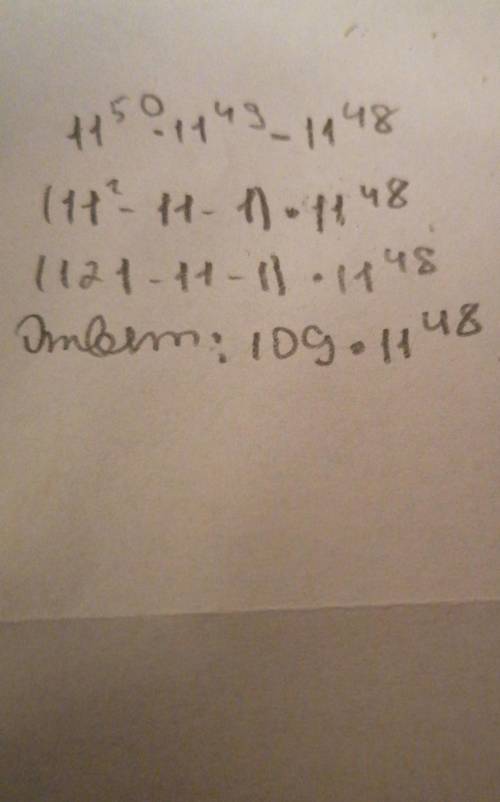 11⁵⁰·11⁴⁹-11⁴⁸
(11²-11-1)·11⁴⁸
(121-11-1)·11⁴⁸
Ответ: 109·11⁴⁸